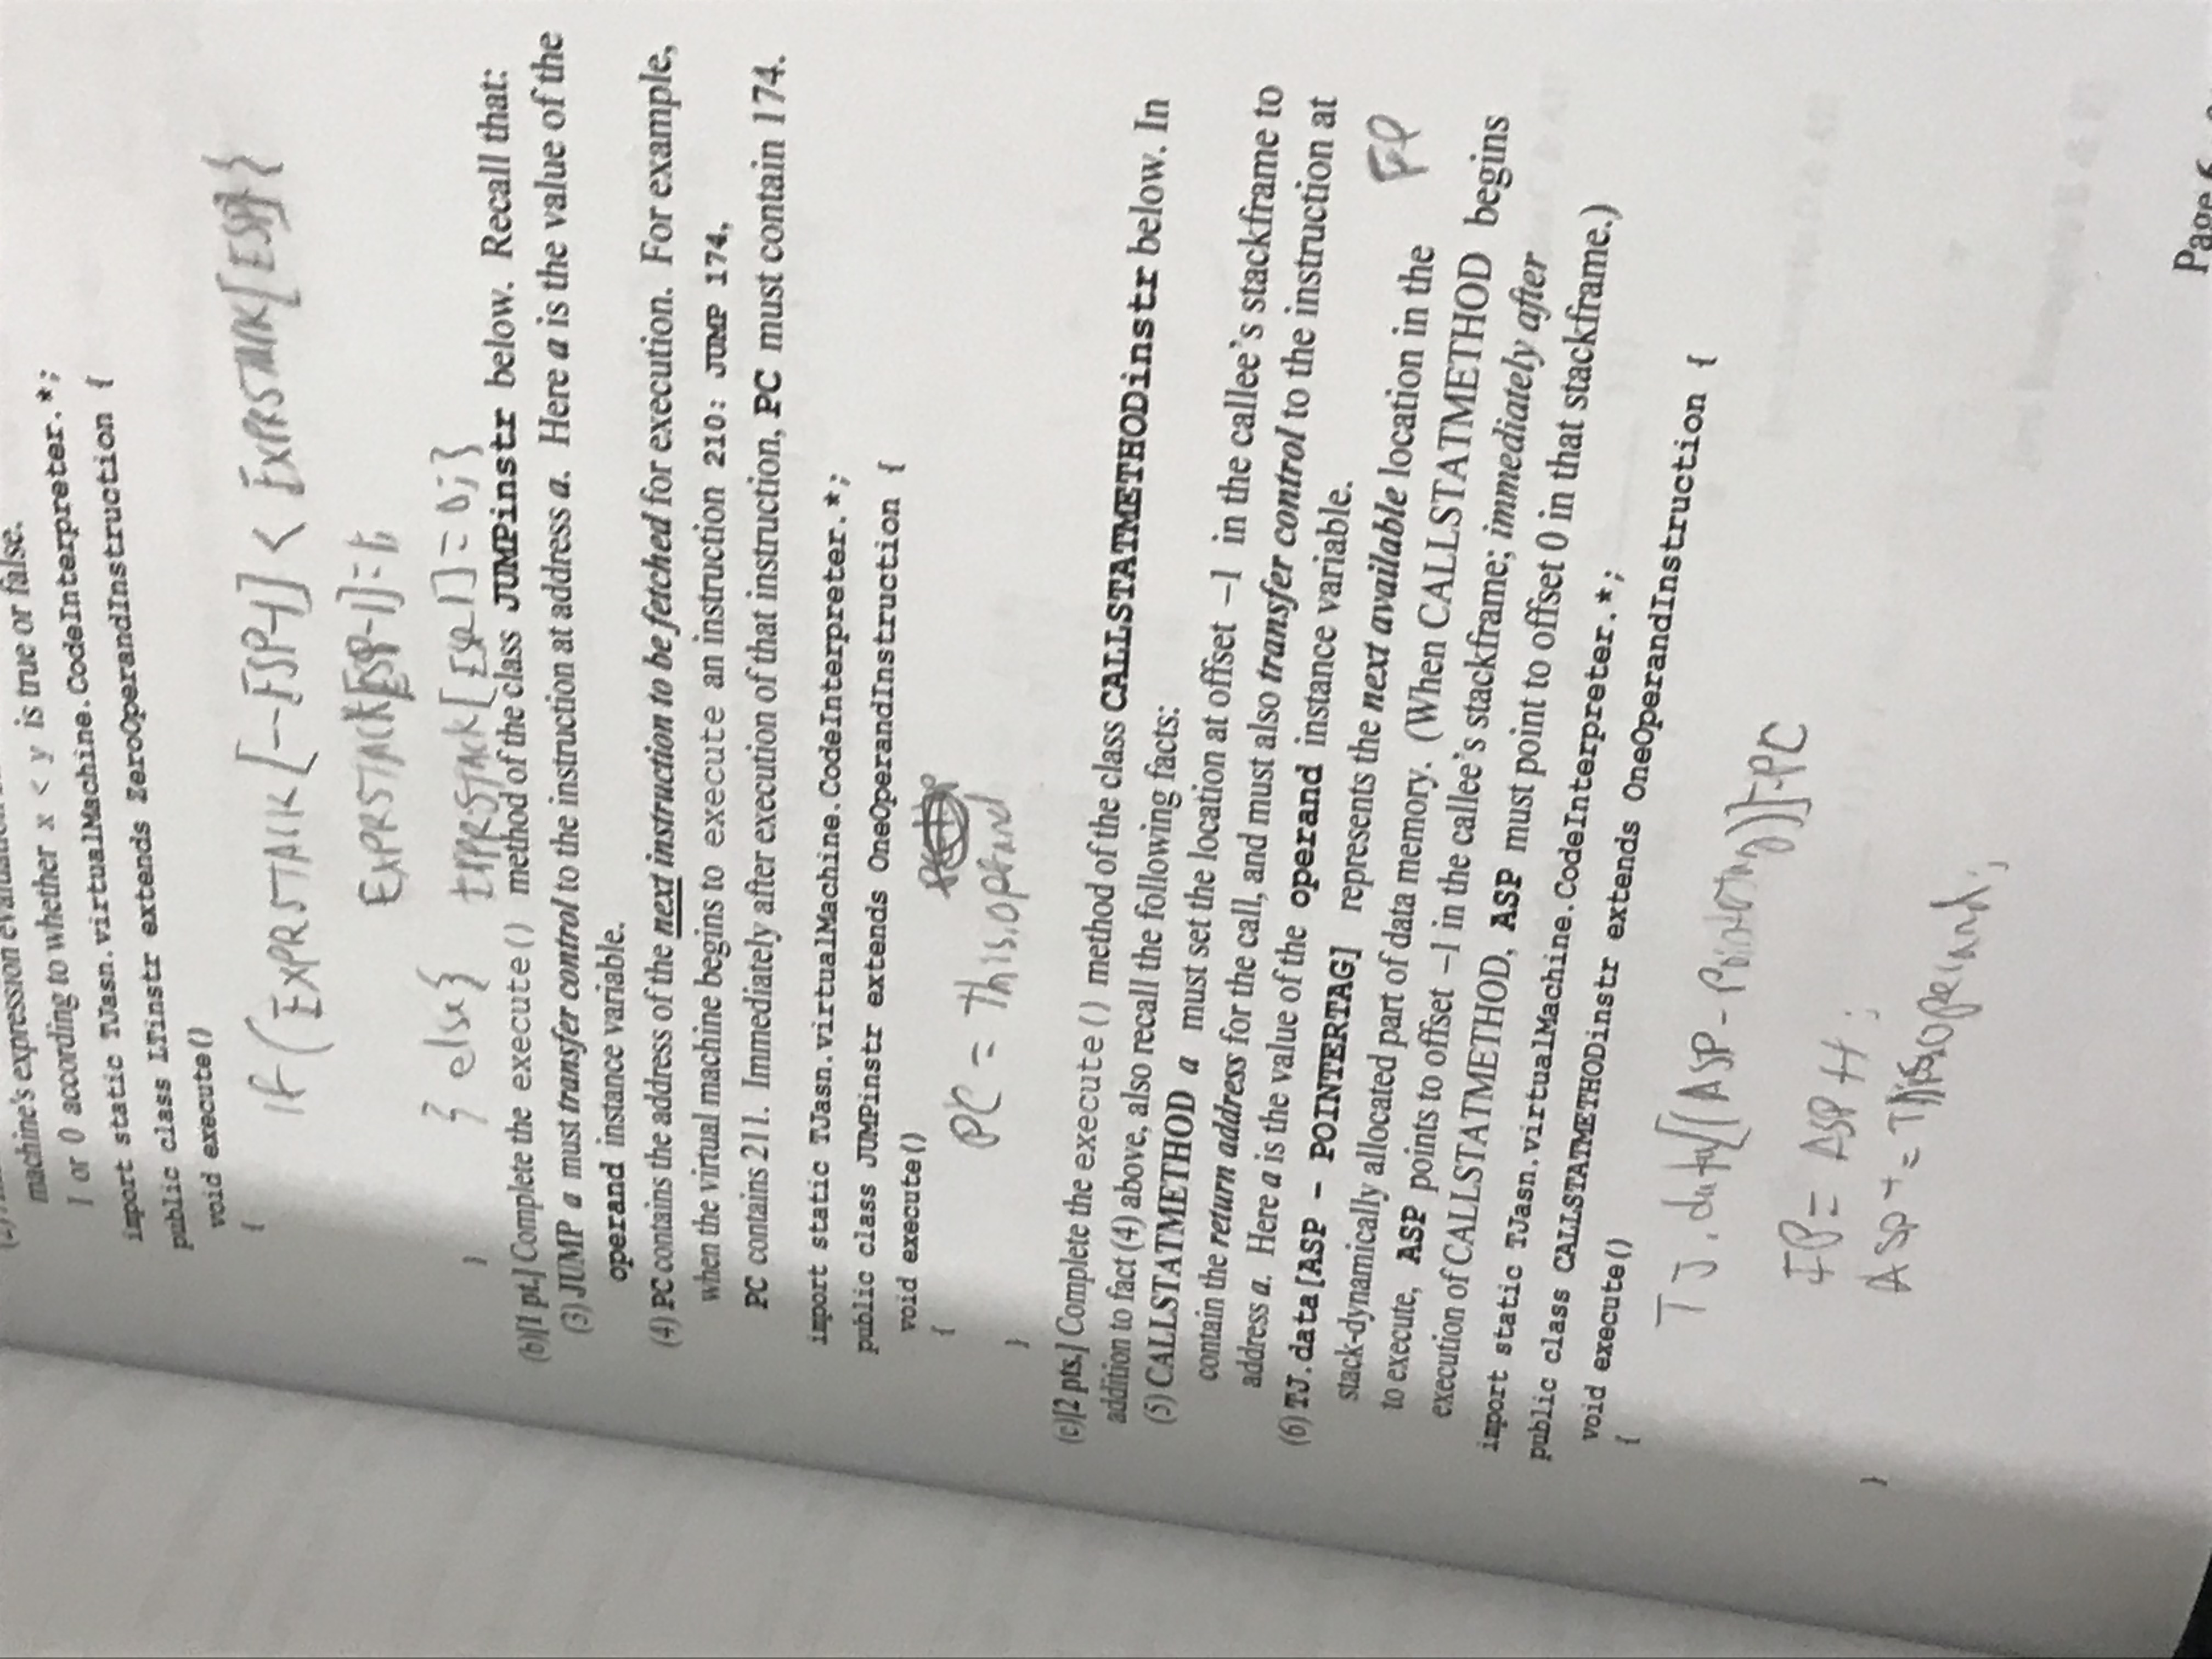 (2)
machine's expression evaluation
1 or 0 according to whether x < y is true or false.
import static TJasn.virtualMachine.CodeInterpreter.*;
public class LTinstr extends ZeroOperandInstruction {
void execute()
{
If (EXPRSTACK[--ESP-1] < EXPRSTACK[ESP]{
EXPRSTACK[ESP-1]=1;
} else{ EXPRSTACK[ESP-1]=0;}
}
(b)[1 pt.] Complete the execute() method of the class JUMPinstr below. Recall that:
(3) JUMP a must transfer control to the instruction at address a. Here a is the value of the
operand instance variable.
(4) PC contains the address of the next instruction to be fetched for execution. For example,
when the virtual machine begins to execute an instruction 210: JUMP 174,
PC contains 211. Immediately after execution of that instruction, PC must contain 174.
import static TJasn.virtualMachine.CodeInterpreter.*;
public class JUMPinstr extends OneOperandInstruction {
void execute()
{
PC = This.operand
}
(c)[2 pts.] Complete the execute() method of the class CALLSTATMETHODinstr below. In
addition to fact (4) above, also recall the following facts:
(5) CALLSTATMETHOD a must set the location at offset –1 in the callee's stackframe to
contain the return address for the call, and must also transfer control to the instruction at
address a. Here a is the value of the operand instance variable.
(6) TJ.data[ASP - POINTERTAG] represents the next available location in the
stack-dynamically allocated part of data memory. (When CALLSTATMETHOD begins
to execute, ASP points to offset –1 in the callee's stackframe; immediately after
execution of CALLSTATMETHOD, ASP must point to offset 0 in that stackframe.)
FP
import static TJasn.virtualMachine.CodeInterpreter.*;
public class CALLSTATMETHODinstr extends OneOperandInstruction {
void execute()
{
TJ.data[(ASP-PointerTag)]=PC
FP= ASP++;
ASP += This.operand;
}
Page 6